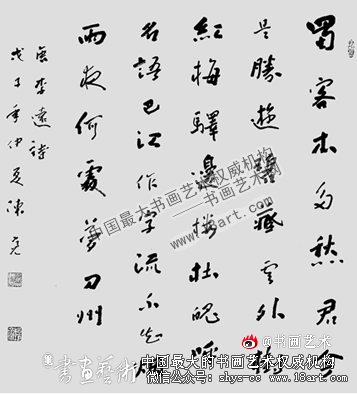 蜀客本多愁君今
是勝遊碧藏雲外樹
紅驛邊樓杜魄呼
名語巴江作字流不知煙
雨夜何處夢刀州
唐李遠詩
戊子年仲夏陳
中国最大的书画艺术权威机构
www.18art.com
@书画艺术
書畫藝術
中国最大的书画艺术权威机构
微信公众号: shys-cc www.18art.com